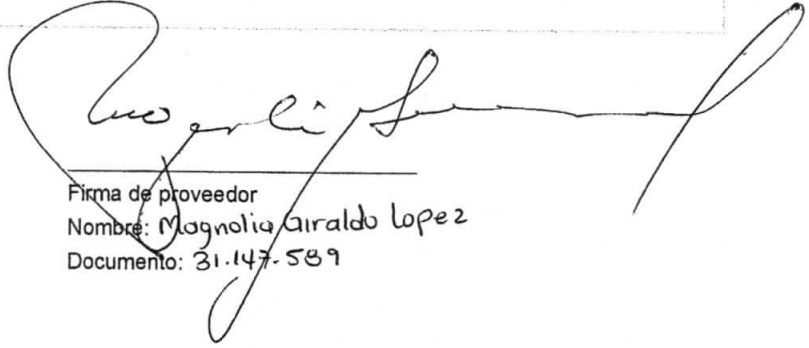 Firma de proveedor
Nombre: Magnolia Giraldo Lopez
Documento: 31.147.589